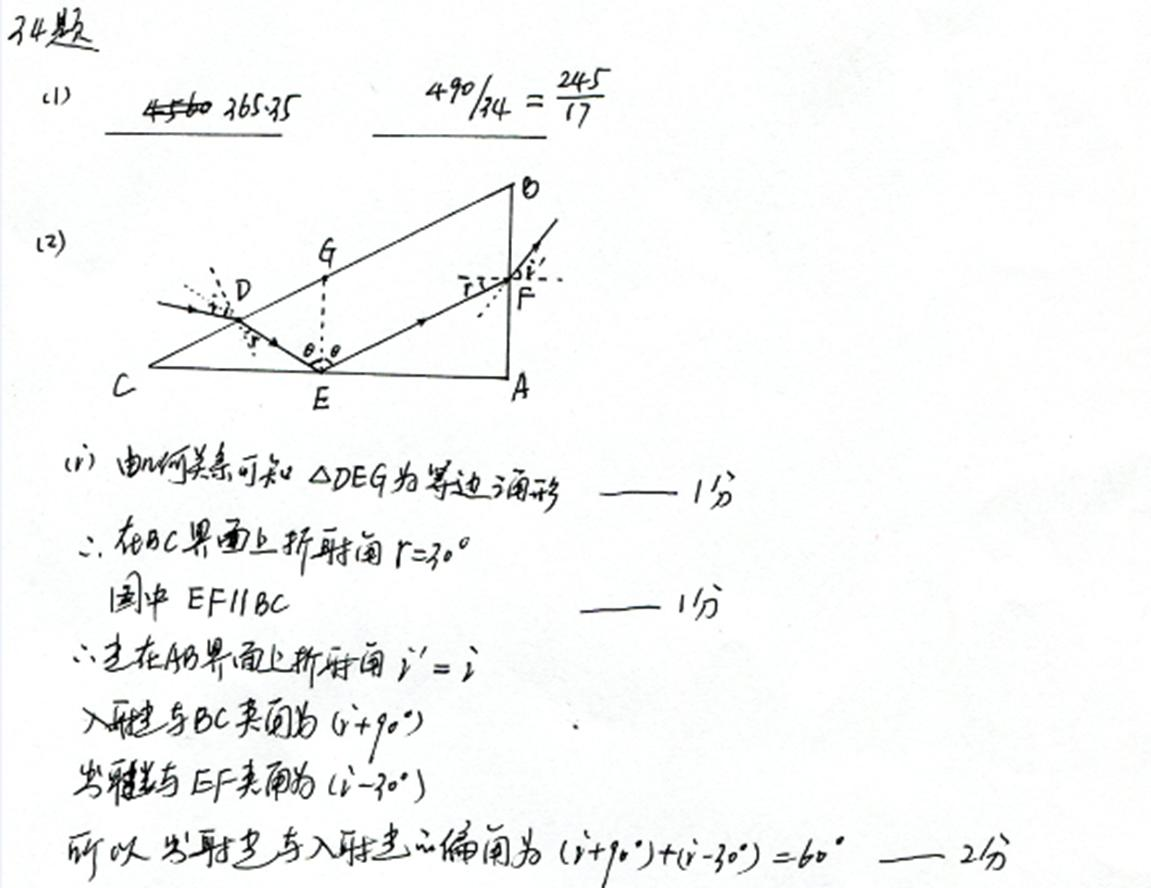 34题
(1) 4560 365.35 490/34 = 245/17
(2)
B
G
D
i
r
i'
F
θ θ
C
E
A
(i) 由几何关系可知 △DEG为等边三角形 —— 1分
∴ 在BC界面上折射角 r=30°
图中 EF∥BC —— 1分
∴光在AB界面上折射角 i'=i
入射光与BC夹角为 (i+90°)
出射光与EF夹角为 (i-30°)
所以 出射光与入射光的偏角为 (i+90°)+(i-30°)=60° —— 2分